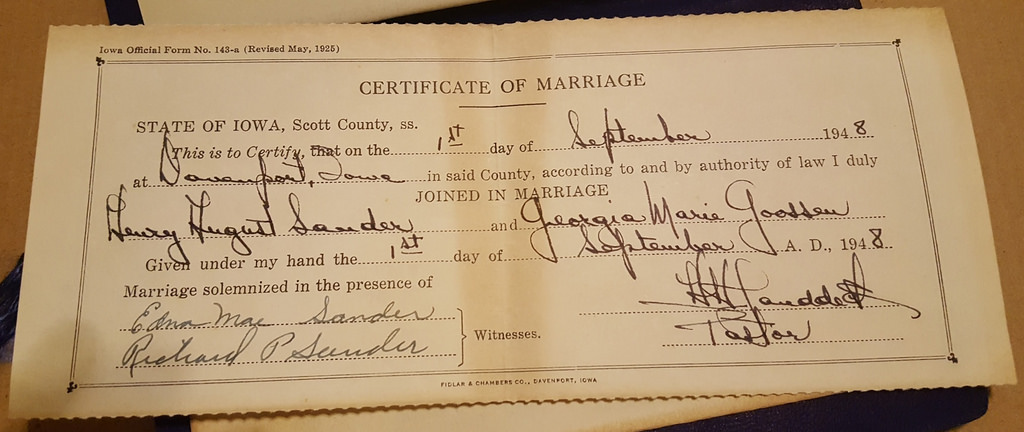 Iowa Official Form No. 143-a (Revised May, 1925)
CERTIFICATE OF MARRIAGE
STATE OF IOWA, Scott County, ss.
This is to Certify, that on the 1st day of September 1948
at Davenport, Iowa in said County, according to and by authority of law I duly
JOINED IN MARRIAGE
Henry August Sander and Georgia Marie Goossen
Given under my hand the 1st day of September A. D., 1948.
Marriage solemnized in the presence of
Edna Mae Sander
Richard P. Sander
Witnesses.
Pastor
FIDLAR & CHAMBERS CO., DAVENPORT, IOWA